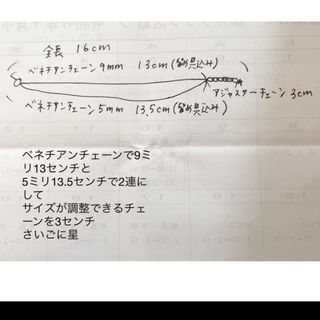 全長 16cm
ベネチアンチェーン 9mm 13cm(留め具込み)
アジャスターチェーン 3cm
ベネチアンチェーン 5mm 13.5cm(留め具込み)
ベネチアンチェーンで9ミ
リ13センチと
5ミリ13.5センチで2連に
して
サイズが調整できるチェ
ーンを3センチ
さいごに星